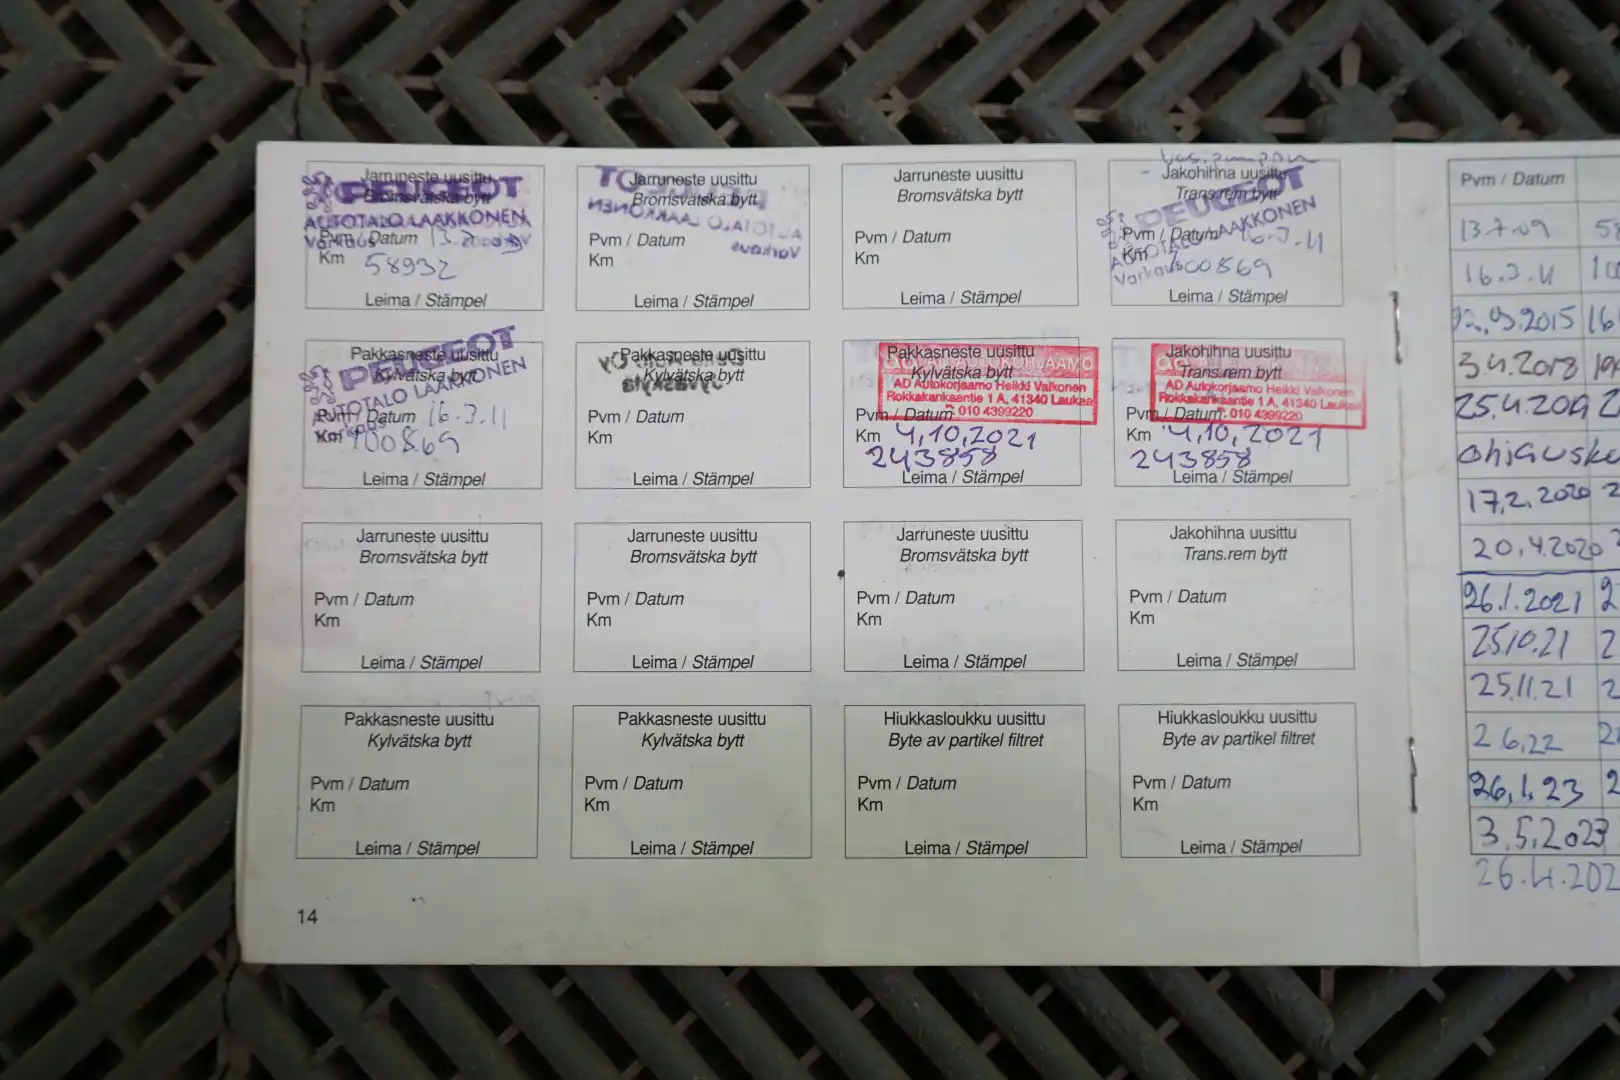 Jarruneste uusittu
Bromsvätska bytt
PEUGEOT
AUTOTALO LAAKKONEN
Varkaus
Pvm / Datum
Km 58932
Leima / Stämpel
Jarruneste uusittu
Bromsvätska bytt
PEUGEOT
AUTOTALO LAAKKONEN
Varkaus
Pvm / Datum
Km
Leima / Stämpel
Jarruneste uusittu
Bromsvätska bytt
Pvm / Datum
Km
Leima / Stämpel
Jakohihna uusittu
Trans.rem bytt
PEUGEOT
AUTOTALO LAAKKONEN
Varkaus
Pvm / Datum 16.3.11
Km 100869
Leima / Stämpel
Pakkasneste uusittu
Kylvätska bytt
PEUGEOT
AUTOTALO LAAKKONEN
Varkaus
Pvm / Datum 16.3.11
Km 100869
Leima / Stämpel
Pakkasneste uusittu
Kylvätska bytt
Pvm / Datum
Km
Leima / Stämpel
Pakkasneste uusittu
Kylvätska bytt
AD Autokorjaamo Heikki Valkonen
Rokkakankaantie 1 A, 41340 Laukaa
010 4399220
Pvm / Datum
Km 4,10,2021
243858
Leima / Stämpel
Jakohihna uusittu
Trans.rem bytt
AD Autokorjaamo Heikki Valkonen
Rokkakankaantie 1 A, 41340 Laukaa
010 4399220
Pvm / Datum
Km 4,10,2021
243858
Leima / Stämpel
Jarruneste uusittu
Bromsvätska bytt
Pvm / Datum
Km
Leima / Stämpel
Jarruneste uusittu
Bromsvätska bytt
Pvm / Datum
Km
Leima / Stämpel
Jarruneste uusittu
Bromsvätska bytt
Pvm / Datum
Km
Leima / Stämpel
Jakohihna uusittu
Trans.rem bytt
Pvm / Datum
Km
Leima / Stämpel
Pakkasneste uusittu
Kylvätska bytt
Pvm / Datum
Km
Leima / Stämpel
Pakkasneste uusittu
Kylvätska bytt
Pvm / Datum
Km
Leima / Stämpel
Hiukkasloukku uusittu
Byte av partikel filtret
Pvm / Datum
Km
Leima / Stämpel
Hiukkasloukku uusittu
Byte av partikel filtret
Pvm / Datum
Km
Leima / Stämpel
14
Pvm / Datum
13.7.09
16.3.11
3.4.2018
17,2,2020
20,4.2020
26.1.2021
25.10.21
25.11.21
2 6,22
26,1,23
3.5.2023